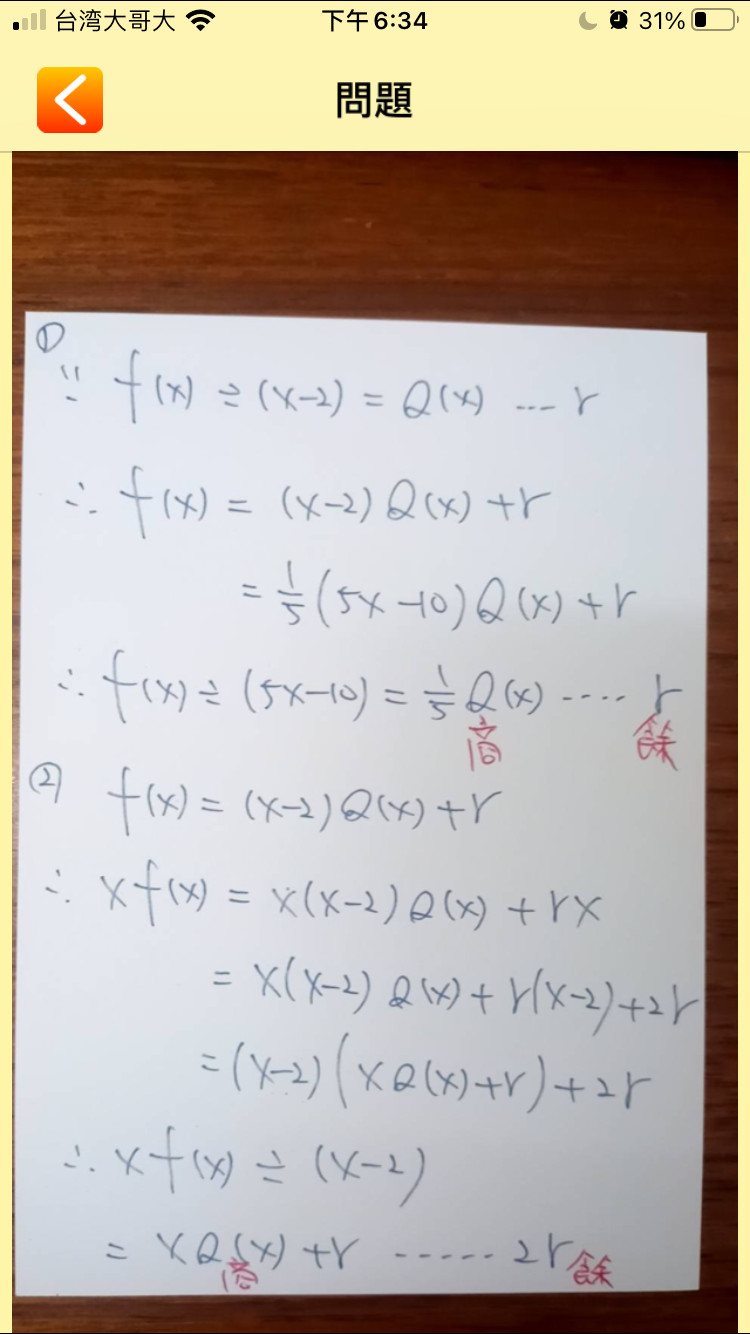 台湾大哥大 下午6:34 31%
問題
①
∵ f(x) ÷ (x-2) = Q(x) ... r
∴ f(x) = (x-2) Q(x) + r
= 1/5 (5x-10) Q(x) + r
∴ f(x) ÷ (5x-10) = 1/5 Q(x) .... r
商 餘
② f(x) = (x-2) Q(x) + r
∴ x f(x) = x(x-2) Q(x) + rx
= x(x-2) Q(x) + r(x-2) + 2r
= (x-2)(xQ(x)+r) + 2r
∴ x f(x) ÷ (x-2)
= xQ(x) + r ..... 2r 餘
商